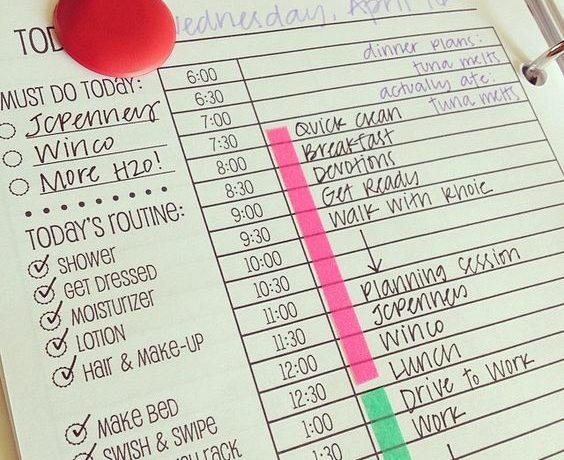 TOD
ednesday, April
MUST DO TODAY:
JCPenney
Winco
More H2O!
TODAY'S ROUTINE:
SHOWER
GET DRESSED
MOISTURIZER
LOTION
HAIR & MAKE-UP
MAKE BED
SWISH & SWIPE
RACK
6:00
6:30
7:00
7:30
8:00
8:30
9:00
9:30
10:00
10:30
11:00
11:30
12:00
12:30
1:00
1:30
dinner plans:
tuna melts
actually ate:
tuna melts
Quick Clean
Breakfast
Devotions
Get Ready
Walk with Khoie
Planning Session
JCPenneys
Winco
Lunch
Drive to Work
Work